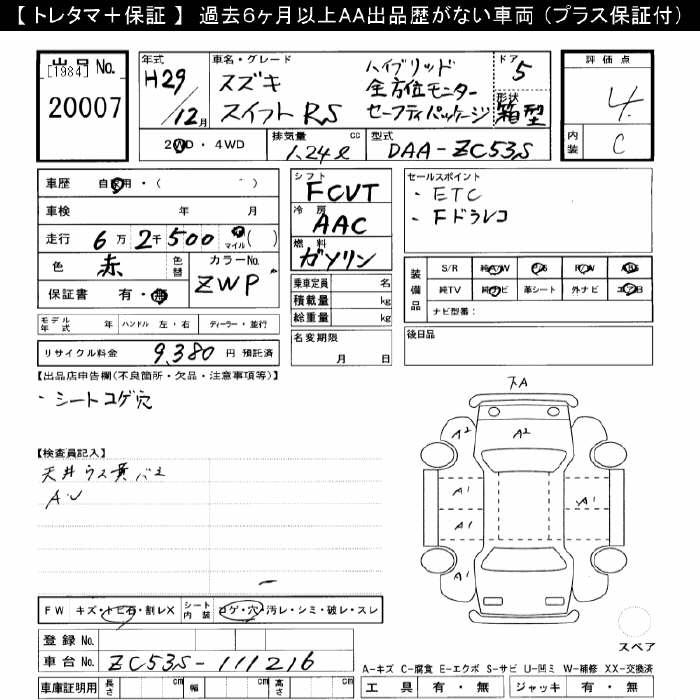 【 トレタマ＋保証 】 過去６ヶ月以上AA出品歴がない車両（プラス保証付）
出品 No.
[1984]
20007
年式
H29
/12月
車名・グレード
スズキ ハイブリッド
全方位モニター
スイフト RS セーフティパッケージ
ドア
5
形状
箱型
2WD ・ 4WD
排気量 cc
1.24ℓ
型式
DAA-ZC53S
評価点
4
内装
C
車歴 自家用・( )
車検 年 月
走行 6万2千500 マイル( )
色 赤 色替
カラーNo.
ZWP
保証書 有・無
シフト
FCVT
冷房
AAC
燃料
ガソリン
乗車定員 名
積載量 kg
総重量 kg
セールスポイント
・ETC
・Fドラレコ
装備品
S/R 純A/W P/S P/W ABS
純TV 純ナビ 革シート 外ナビ エアB
ナビ型番：
モデル年式 年 ハンドル 左・右 ディーラー・並行
リサイクル料金 9,380 円 預託済
名変期限
月 日
後日品
【出品店申告欄(不良箇所・欠品・注意事項等)】
・シートコゲ穴
【検査員記入】
天井ウス
AU
下A
A2
A2
A1
A1
A1
A1
FW キズ・トビ石・割レX シート内装 コゲ・穴・汚レ・シミ・破レ・スレ
登録 No.
車台 No. ZC53S-111216
車庫証明用 長さ cm 幅 cm 高さ cm
スペア
A-キズ C-腐食 E-エクボ S-サビ U-凹ミ W-補修 XX-交換済
工具 有・無 ジャッキ 有・無